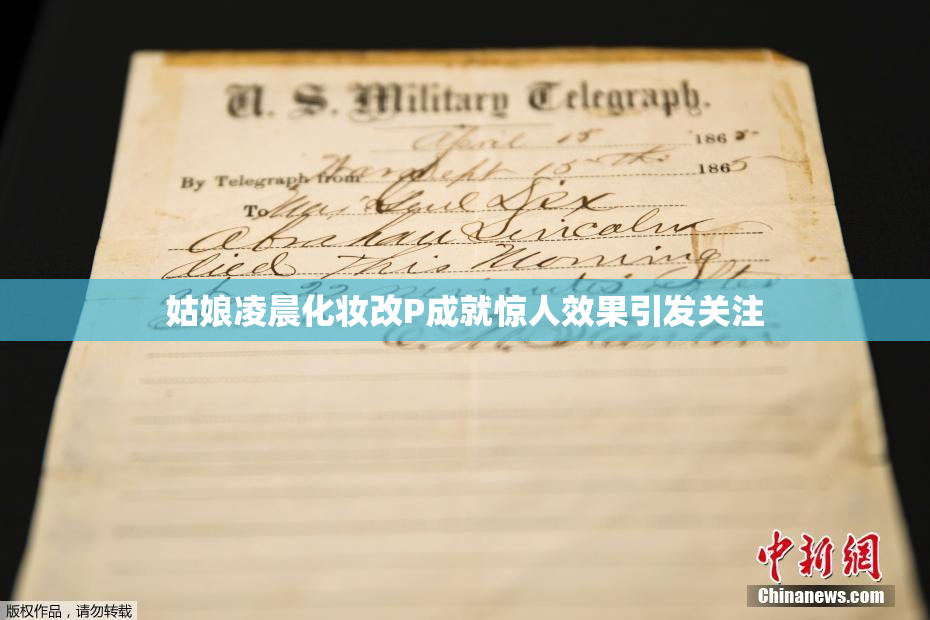 U. S. Military Telegraph.
April 15 1865.
By Telegraph from War Dept 15th 1865
To Maj Genl Dix
Abraham Lincoln
died This Morning
at 22 minutes after
姑娘凌晨化妆改P成就惊人效果引发关注
E. M. Stanton
中新网
Chinanews.com
版权作品，请勿转载